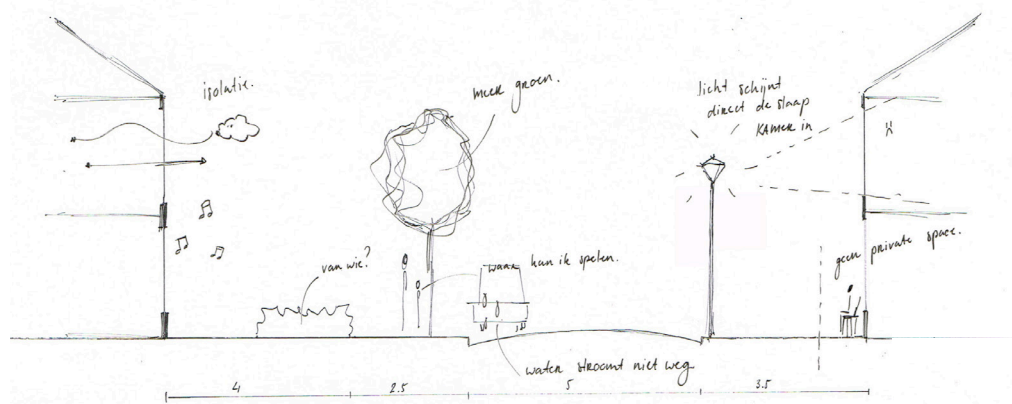 isolatie.
meer groen.
licht schijnt
direct de slaap
KAMER in
van wie?
waar kan ik spelen.
geen private space.
water stroomt niet weg
4
2.5
5
3.5